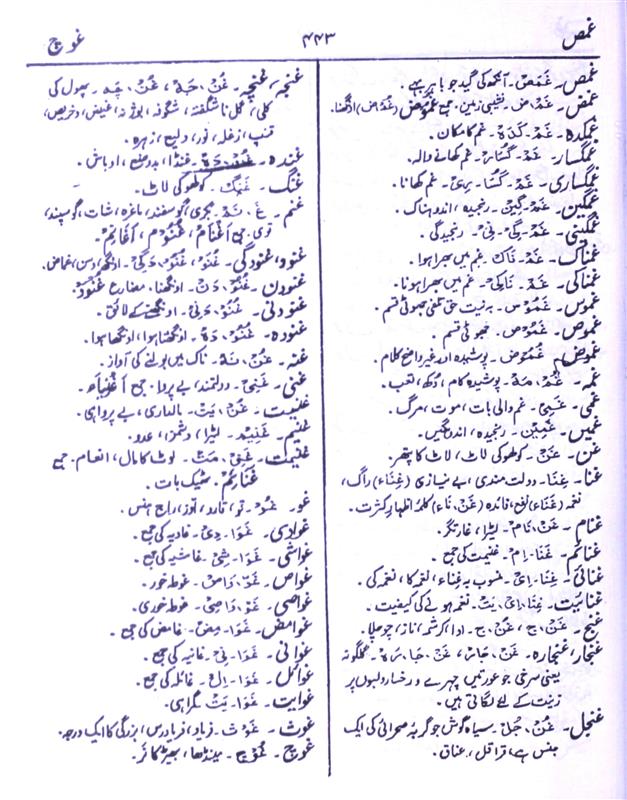 غمص
۴۴۳
غوچ
غمص۔ غَمَص۔ آنکھ کی گید جو باہر بہے۔
غمض۔ غَمْ۔ ض۔ نشیبی زمین۔ جمع غموض (غُمْ۔ ض) اونگھنا۔
غمکدہ۔ غَمْ۔ کَدَہ۔ غم کا مکان۔
غمگسار۔ غَمْ۔ گُسَار۔ غم کھانے والا۔
غمگساری۔ غَمْ۔ گُسَا۔ رِی۔ غم کھانا۔
غمگین۔ غَمْ۔ گِیْن۔ رنجیدہ، اندوہناک۔
غمگینی۔ غَمْ۔ گِیْ۔ نِی۔ رنجیدگی۔
غمناک۔ غَمْ۔ نَاک۔ غم میں بھرا ہوا۔
غمناکی۔ غَمْ۔ نَاکِی۔ غم میں بھرا ہونا۔
غموس۔ غَمُوْس۔ بہ نیت حق تلفی جھوٹی قسم۔
غموص۔ غَمُوْص۔ جھوٹی قسم۔
غموض۔ غُمُوْض۔ پوشیدہ اور غیر واضح کلام۔
غمہ۔ غُمْ۔ مَہ۔ پوشیدہ کام، دُکھ، تعب۔
غمی۔ غَمِیْ۔ غم والی بات، موت، مرگ۔
غمیں۔ غَمِیْن۔ رنجیدہ، اندوہگیں۔
غن۔ غَنْ۔ کولھو کی لاٹ، لاٹ کا پتھر۔
غنا۔ غِنَا۔ دولت مندی، بے نیازی (غِنَاء) راگ،
نغمہ (غَنَاء) نفع، فائدہ (غَنْ۔ نَاء) کلمۂ اظہارِ کثرت۔
غنام۔ غَنْ۔ نَام۔ لیٹرا، غارتگر۔
غنائم۔ غَنَا۔ اِم۔ غنیمت کی جمع۔
غنائی۔ غِنَا۔ اِیْ۔ منسوب بہ غِناء، نغمہ کا، نغمہ کی۔
غنائیت۔ غِنَا۔ اِیْ۔ یَت۔ نغمہ ہونے کی کیفیت۔
غنج۔ غَنْ۔ ج، غُنْ۔ ج۔ ادا، کرشمہ، ناز، چوچلا۔
غنجار، غنجارہ۔ غَنْ۔ جَار، غَنْ۔ جَا۔ رَہ۔ گلگونہ
یعنی سرخی جو عورتیں چہرے و رخسار و لبوں پر
زینت کے لئے لگاتی ہیں۔
غنجل۔ غُنْ۔ جُل۔ سیاہ گوش جو گربۂ صحرائی کی ایک
جنس ہے، قراقل، عناق۔
غنجہ، غنچہ۔ غُنْ۔ جَہ، غُنْ۔ چَہ۔ پھول کی
کلی، گل ناشگفتہ، شگوفہ،
قنب، زغلہ، نور، ولیع، زہرہ۔
غندہ۔ غُنْ۔ دَہ۔ غنڈا، بدوضع، اوباش۔
غنگ۔ غَنْگ۔ کولھو کی لاٹ۔
غنم۔ غَ۔ نَم۔ بکری، گوسفند، ماغزہ، شات، گوسپند،
توی۔ جمع اَغْنَام، غُنُوْم، اَغَانِم۔
غنود، غنودگی۔ غُنُوْد، غُنُوْدَ۔ گِی۔ اونگھ، وسن، غماض۔
غنودن۔ غُنُوْ۔ دَن۔ اونگھنا۔ مضارع غُنُوَد۔
غنودنی۔ غُنُوْ۔ دَنِی۔ اونگھنے کے لائق۔
غنودہ۔ غُنُوْ۔ دَہ۔ اونگھتا ہوا، اونگھا ہوا۔
غنہ۔ غُنْ۔ نَہ۔ ناک میں بولنے کی آواز۔
غنی۔ غَنِیْ۔ دولتمند، بے پروا۔ جمع اَغْنِیَاء۔
غنیت۔ غُنْ۔ یَت۔ مالداری، بے پرواہی۔
غنیم۔ غَنِیْم۔ لیٹرا، دشمن، عدو۔
غنیمت۔ غَنِیْ۔ مَت۔ لوٹ کا مال، انعام۔ جمع
غَنَائِم۔ ٹھیک بات۔
غو۔ غَو۔ قو، قارو، آوز، راج ہنس۔
غوادی۔ غَوَا۔ دِی۔ غادیہ کی جمع۔
غواشی۔ غَوَا۔ شِیْ۔ غاشیہ کی جمع۔
غواص۔ غَوْ۔ وَاص۔ غوطہ خور۔
غواصی۔ غَوْ۔ وَاصِی۔ غوطہ خوری۔
غوامض۔ غَوَا۔ مِض۔ غامض کی جمع۔
غوانی۔ غَوَا۔ نِی۔ غانیہ کی جمع۔
غوائل۔ غَوَا۔ اِل۔ غائلہ کی جمع۔
غوایت۔ غَوَا۔ یَت۔ گمراہی۔
غوث۔ غَوْث۔ فریاد، فریادرس، بزرگی کا ایک درجہ۔
غوچ۔ غُوْچ۔ مینڈھا، بھیڑ کا نر۔